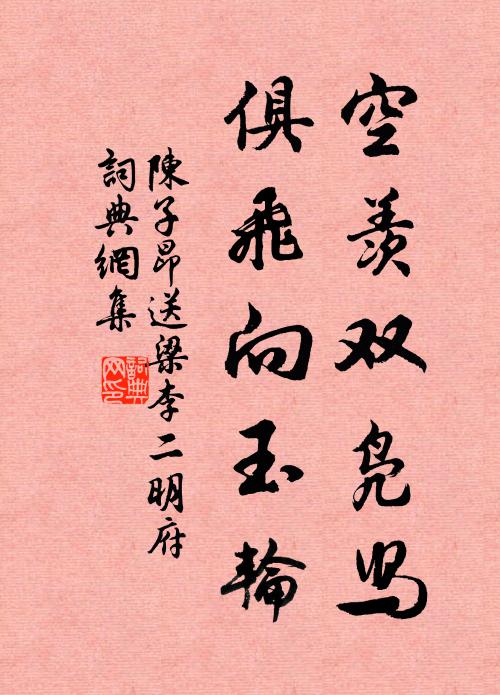 空羨双凫舄
俱飛向玉輪
陳子昂送梁李二明府
詞典網集
詞典网印